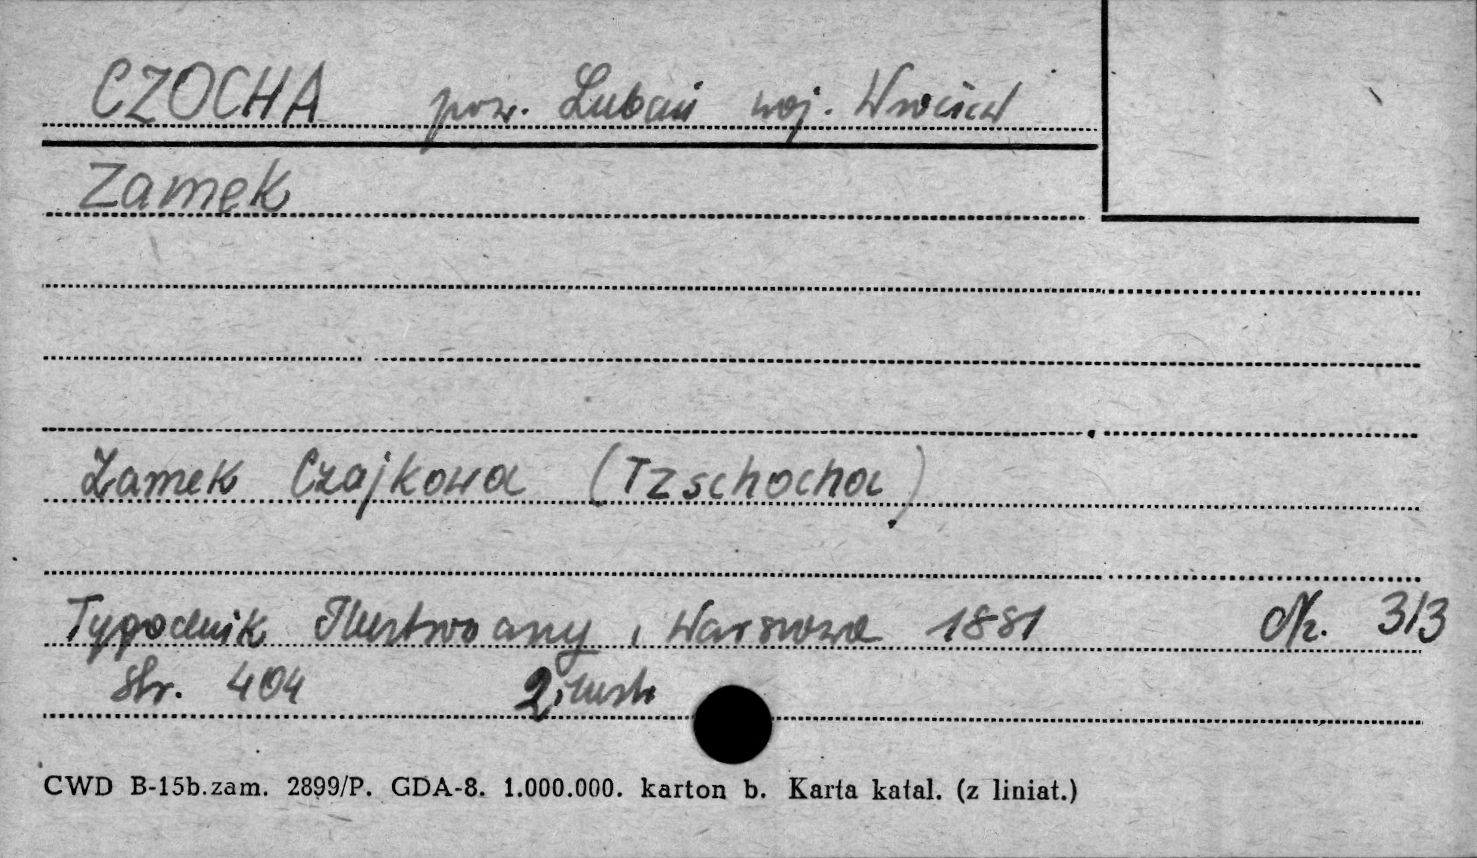 CZOCHA pow. Lubań woj. Wrocław
Zamek
Zamek Czajkowa (Tzschocha)
Tygodnik Ilustrowany, Warszawa 1881 Nr. 313
Str. 404 2 ilustr.
CWD B-15b.zam. 2899/P. GDA-8. 1.000.000. karton b. Karta katal. (z liniat.)